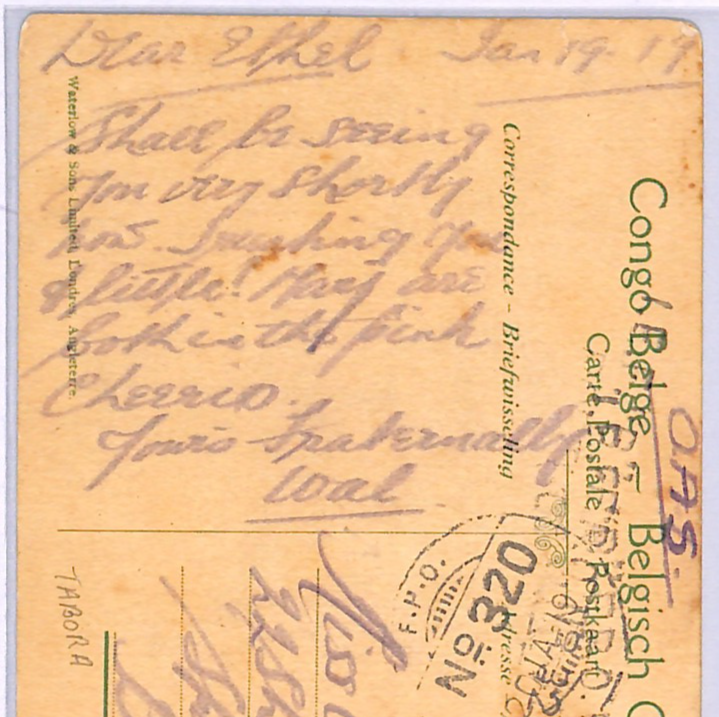 Dear Ethel Jan 19. 19
Shall be seeing
you very shortly
now. Touching you
a little! Mary are
both in the pink
Cheerio.
Yours fraternally
Wal
Waterlow & Sons Limited, Londres, Angleterre.
Correspondance - Briefwisseling
Congo Belge - Belgisch C
Carte Postale Postkaart
O.A.S.
F.P.O.
No. 320
Adresse
TABORA
Miss